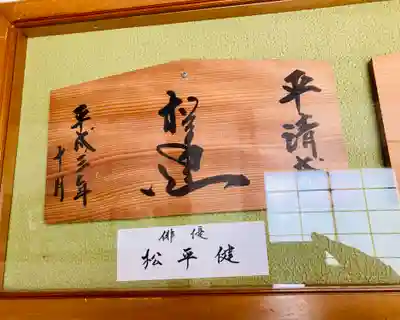 平清
松
平成三年
十月
俳優
松平健